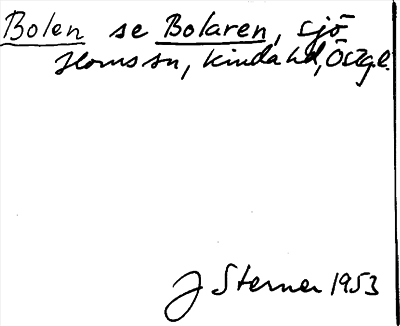 Bolen se Bolaren, sjö
Horns sn, Kinda hd, Östgl.
J Sterner 1953